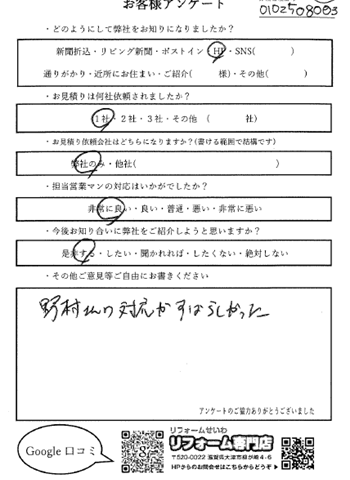 お客様アンケート
0102508003
・どのようにして弊社をお知りになりましたか?
新聞折込・リビング新聞・ポストイン・HP・SNS( )
通りがかり・近所にお住まい・ご紹介( 様)・その他( )
・お見積りは何社依頼されましたか?
1社・2社・3社・その他 ( 社)
・お見積り依頼会社はどちらになりますか?(書ける範囲で結構です)
弊社のみ・他社( )
・担当営業マンの対応はいかがでしたか?
非常に良い・良い・普通・悪い・非常に悪い
・今後お知り合いに弊社をご紹介しようと思いますか?
是非する・したい・聞かれれば・したくない・絶対しない
・その他ご意見等ご自由にお書きください
野村さんの対応がすばらしかった
アンケートのご協力ありがとうございました
Google 口コミ
リフォームせいわ
リフォーム専門店
〒520-0022 滋賀県大津市柳が崎4-6
HPからのお問合せはこちらからどうぞ▶